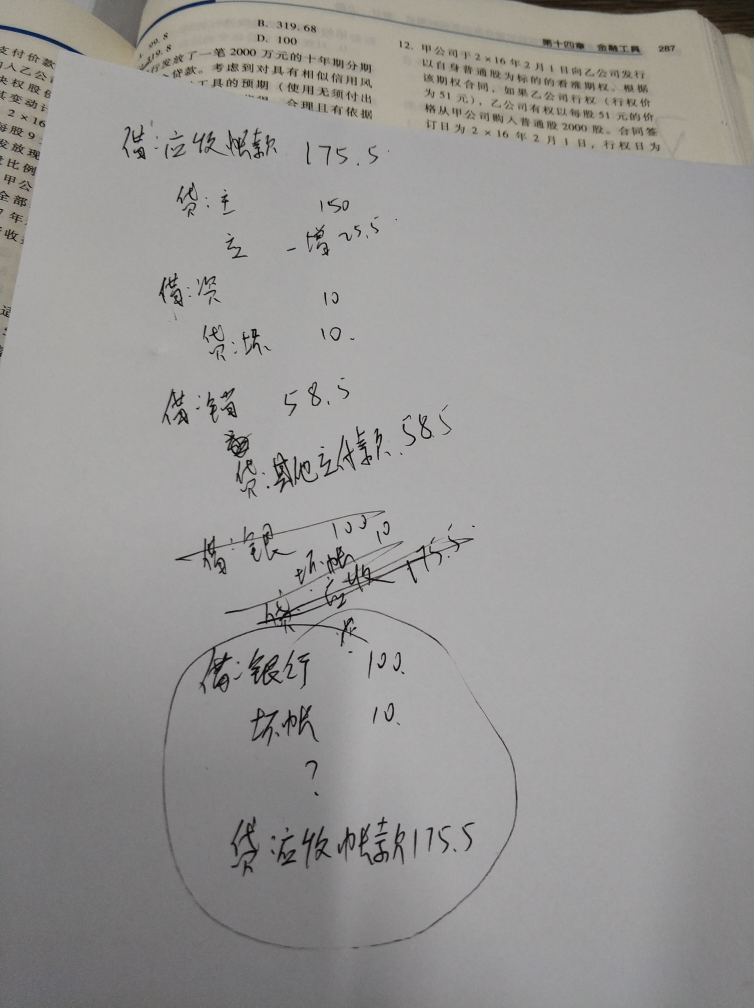 支付价款
B. 319.68
D. 100
行发放了一笔2000万元的十年期分期
贷款。考虑到对具有相似信用风
工具的预期（使用无须付出
合理且有依据
第十四章 金融工具 287
12. 甲公司于2×16年2月1日向乙公司发行
以自身普通股为标的的看涨期权。根据
该期权合同，如果乙公司行权（行权价
为51元），乙公司有权以每股51元的价
格从甲公司购入普通股2000股。合同签
订日为2×16年2月1日，行权日为
借:应收帐款 175.5
贷:主 150
应-增 25.5
借:资 10
贷:坏 10.
借:销 58.5
贷:其他应付款 58.5
借:银 100
坏帐 10
贷:应收 175.5
借:银行 100.
坏帐 10.
?
贷:应收帐款 175.5